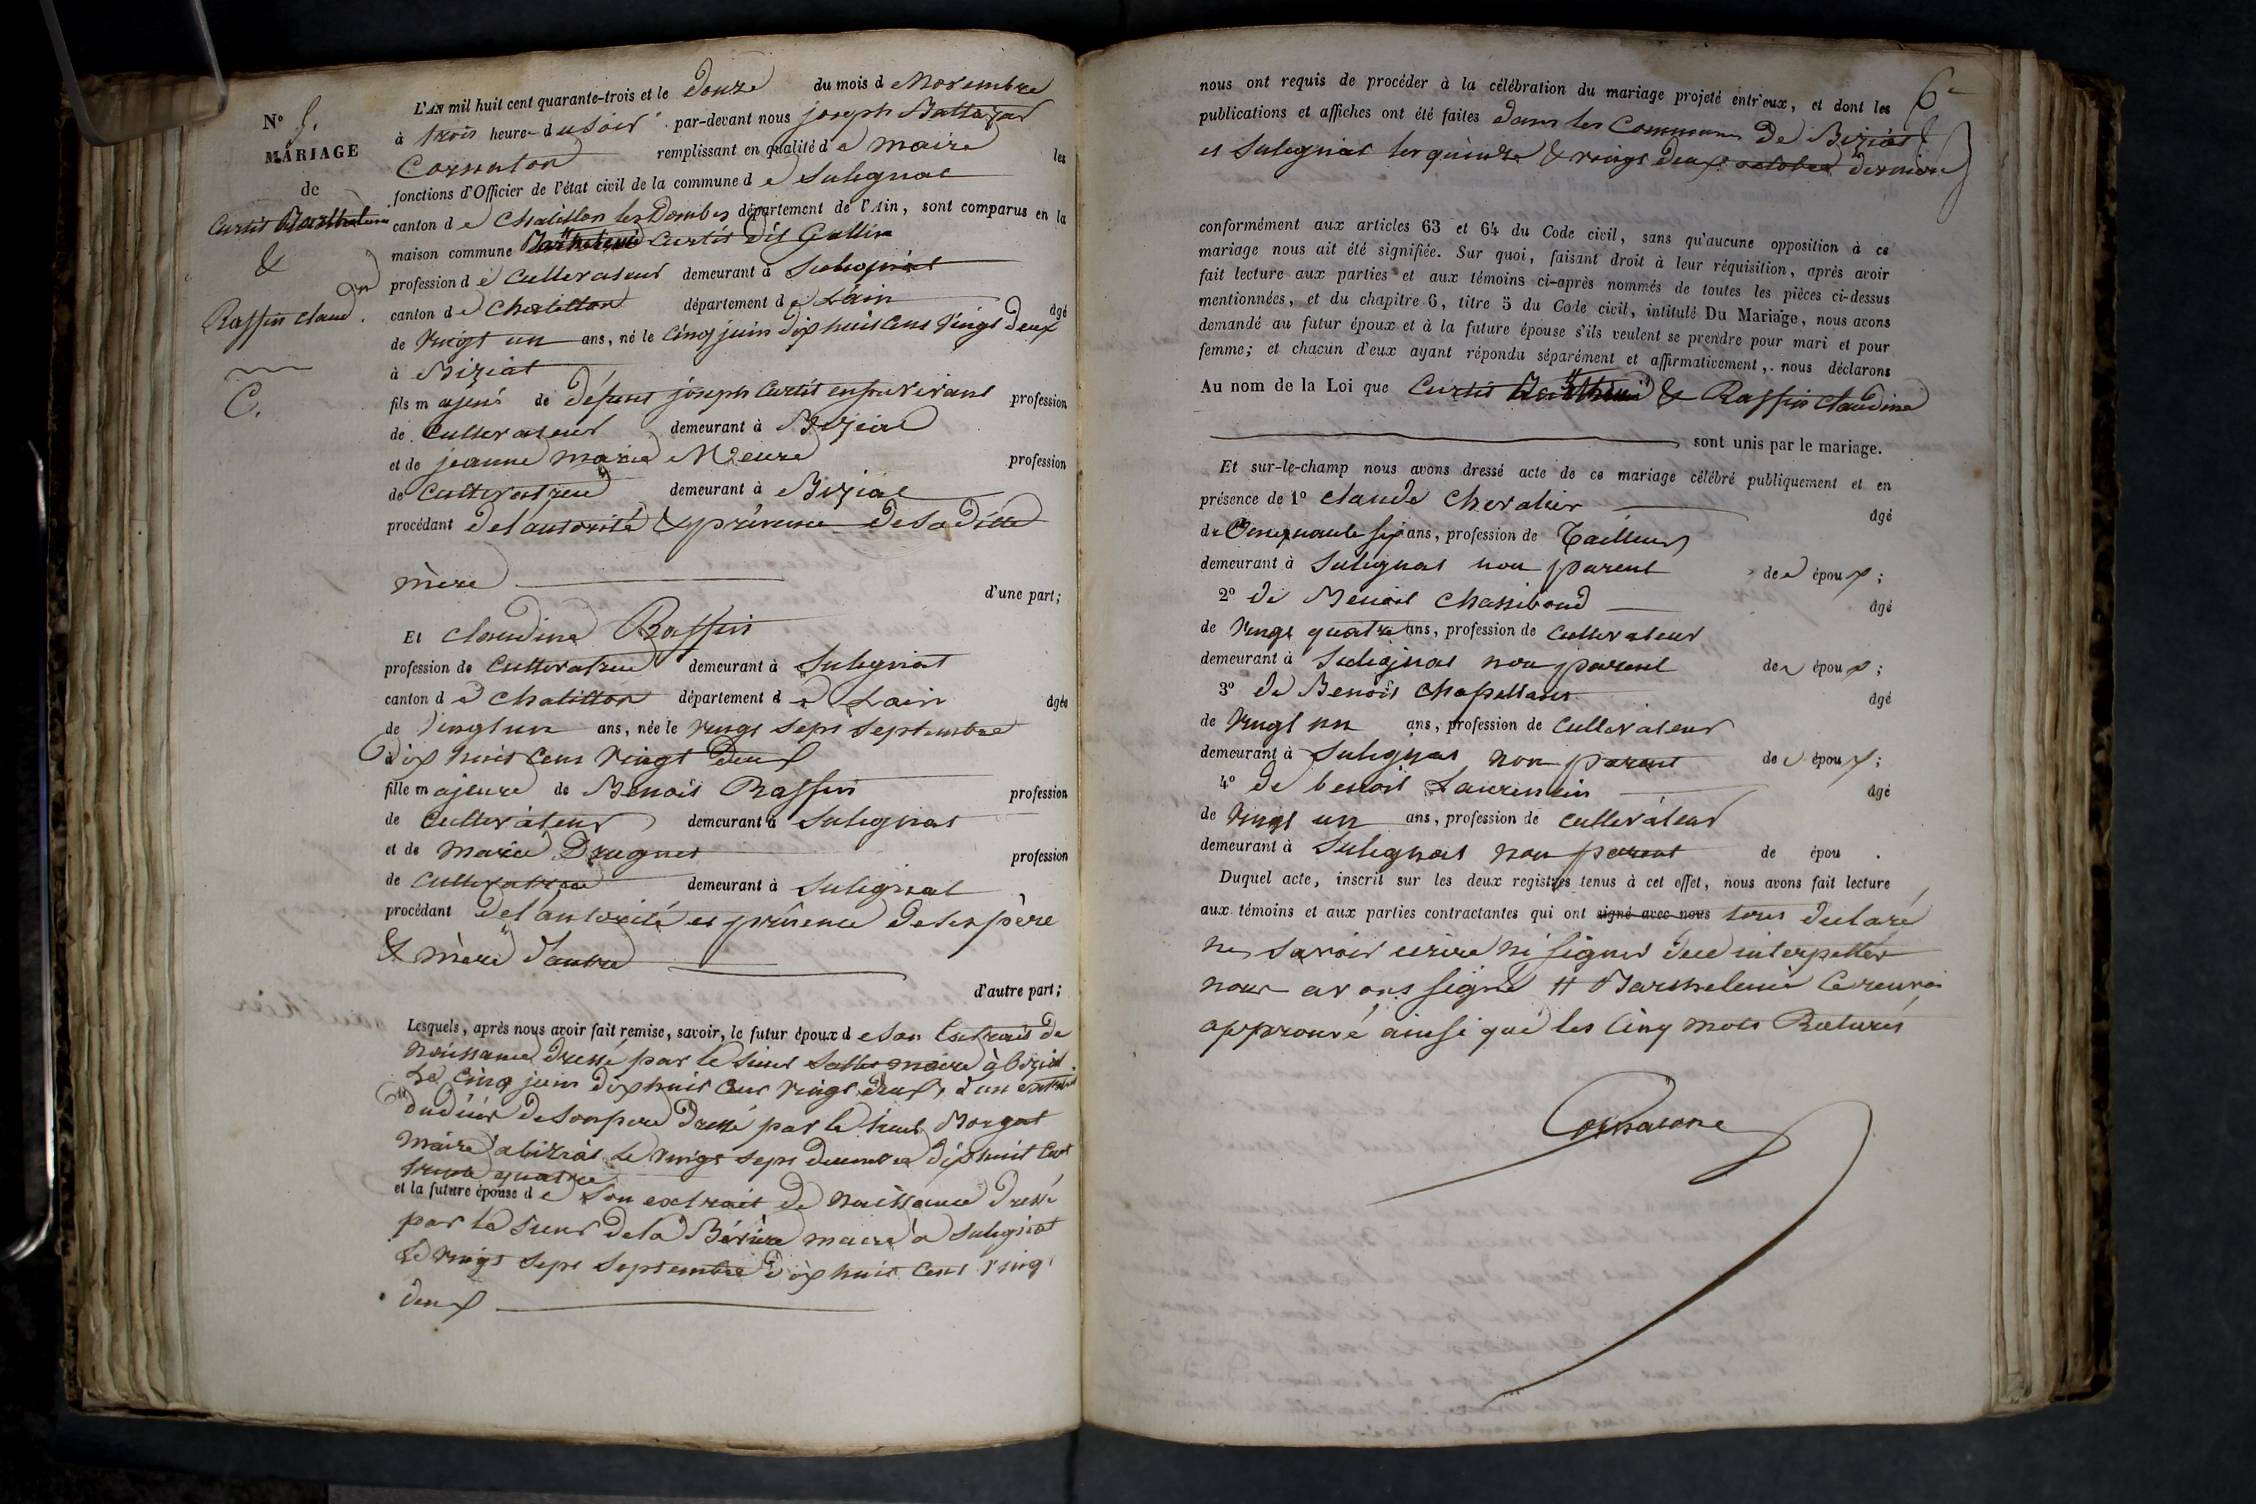 N° 8.
MARIAGE
de
Curtit Barthelemi
&
Raffin claudine
C.
L'AN mil huit cent quarante-trois et le douze du mois de Novembre
à trois heure du soir par-devant nous joseph Baltazar
Cornaton remplissant en qualité de maire les
fonctions d'Officier de l'état civil de la commune de Sulignat
canton de Chatillon les Dombes département de l'Ain, sont comparus en la
maison commune Barthelemi Curtit dit Gallin
profession de cultivateur demeurant à Sulignat
canton de Chatillon département de L'ain âgé
de vingt un ans, né le cinq juin dix huit cent vingt deux
à Biziat
fils majeur de défunt joseph Curtit en son vivant profession
de cultivateur demeurant à Biziat
et de jeanne marie profession
de cultivatrice demeurant à Biziat
procédant de l'autorité & présence de sa ditte
mère
d'une part;
Et claudine Raffin
profession de cultivatrice demeurant à Sulignat
canton de Chatillon département de L'ain âgée
de vingt un ans, née le vingt sept septembre
à dix huit cent vingt deux
fille majeure de Benoit Raffin profession
de cultivateur demeurant à Sulignat
et de marie Druguet profession
de cultivatrice demeurant à Sulignat
procédant de l'autorité et présence de ses père
& mère d'autre
d'autre part;
Lesquels, après nous avoir fait remise, savoir, le futur époux de son Extrait de
naissance dressé par le sieur maire à Biziat
Le cinq juin dix huit cent vingt deux, d'un extrait
du décès de son pere dressé par le sieur Morgat
maire à biziat le vingt sept decembre dix huit cent
trente quatre
et la future épouse de son extrait de naissance dressé
par le sieur de la Bévière maire à Sulignat
Le vingt sept septembre dix huit cent vingt
deux
6
nous ont requis de procéder à la célébration du mariage projeté entr'eux, et dont les
publications et affiches ont été faites dans les Communes de Biziat
et Sulignat les quinze & vingt deux octobre dernier
conformément aux articles 63 et 64 du Code civil, sans qu'aucune opposition à ce
mariage nous ait été signifiée. Sur quoi, faisant droit à leur réquisition, après avoir
fait lecture aux parties et aux témoins ci-après nommés de toutes les pièces ci-dessus
mentionnées, et du chapitre 6, titre 5 du Code civil, intitulé Du Mariage, nous avons
demandé au futur époux et à la future épouse s'ils veulent se prendre pour mari et pour
femme; et chacun d'eux ayant répondu séparément et affirmativement, nous déclarons
Au nom de la Loi que Curtit Barthelemi & Raffin claudine
sont unis par le mariage.
Et sur-le-champ nous avons dressé acte de ce mariage célébré publiquement et en
présence de 1° claude Chevalier âgé
de Cinquante six ans, profession de Tailleur
demeurant à Sulignat non parent des époux;
2° de Benoit Chassiboud âgé
de vingt quatre ans, profession de cultivateur
demeurant à Sulignat non parent des époux;
3° de Benoit Chapelland âgé
de vingt un ans, profession de cultivateur
demeurant à Sulignat non parent des époux;
4° de benoit Laurencin âgé
de vingt un ans, profession de cultivateur
demeurant à Sulignat non parent de épou .
Duquel acte, inscrit sur les deux registres tenus à cet effet, nous avons fait lecture
aux témoins et aux parties contractantes qui ont signé avec nous tous declaré
ne savoir ecrire ni signer de ce interpellés
nous avons signé # Barthelemi Le renvoi
approuvé ainsi que les Cinq mots Raturés
Cornatone